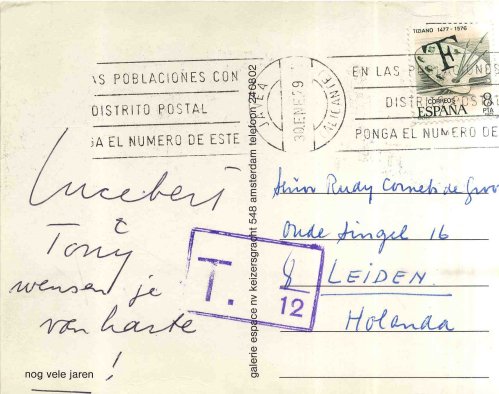 TIZIANO 1477 - 1576
CORREOS
ESPAÑA
8
PTA
AS POBLACIONES CON
DISTRITO POSTAL
PONGA EL NUMERO DE ESTE
JAVEA
30 ENE 79
ALICANTE
EN LAS POBLACIONES
DISTRITO POSTAL
PONGA EL NUMERO DE
Lucebert
&
Tony
wensen je
van harte
!
nog vele jaren
galerie espace nv keizersgracht 548 amsterdam telefoon 240802
T. 8
12
Señor Rudy Cornets de Groo
Oude Singel 16
LEIDEN.
Holanda